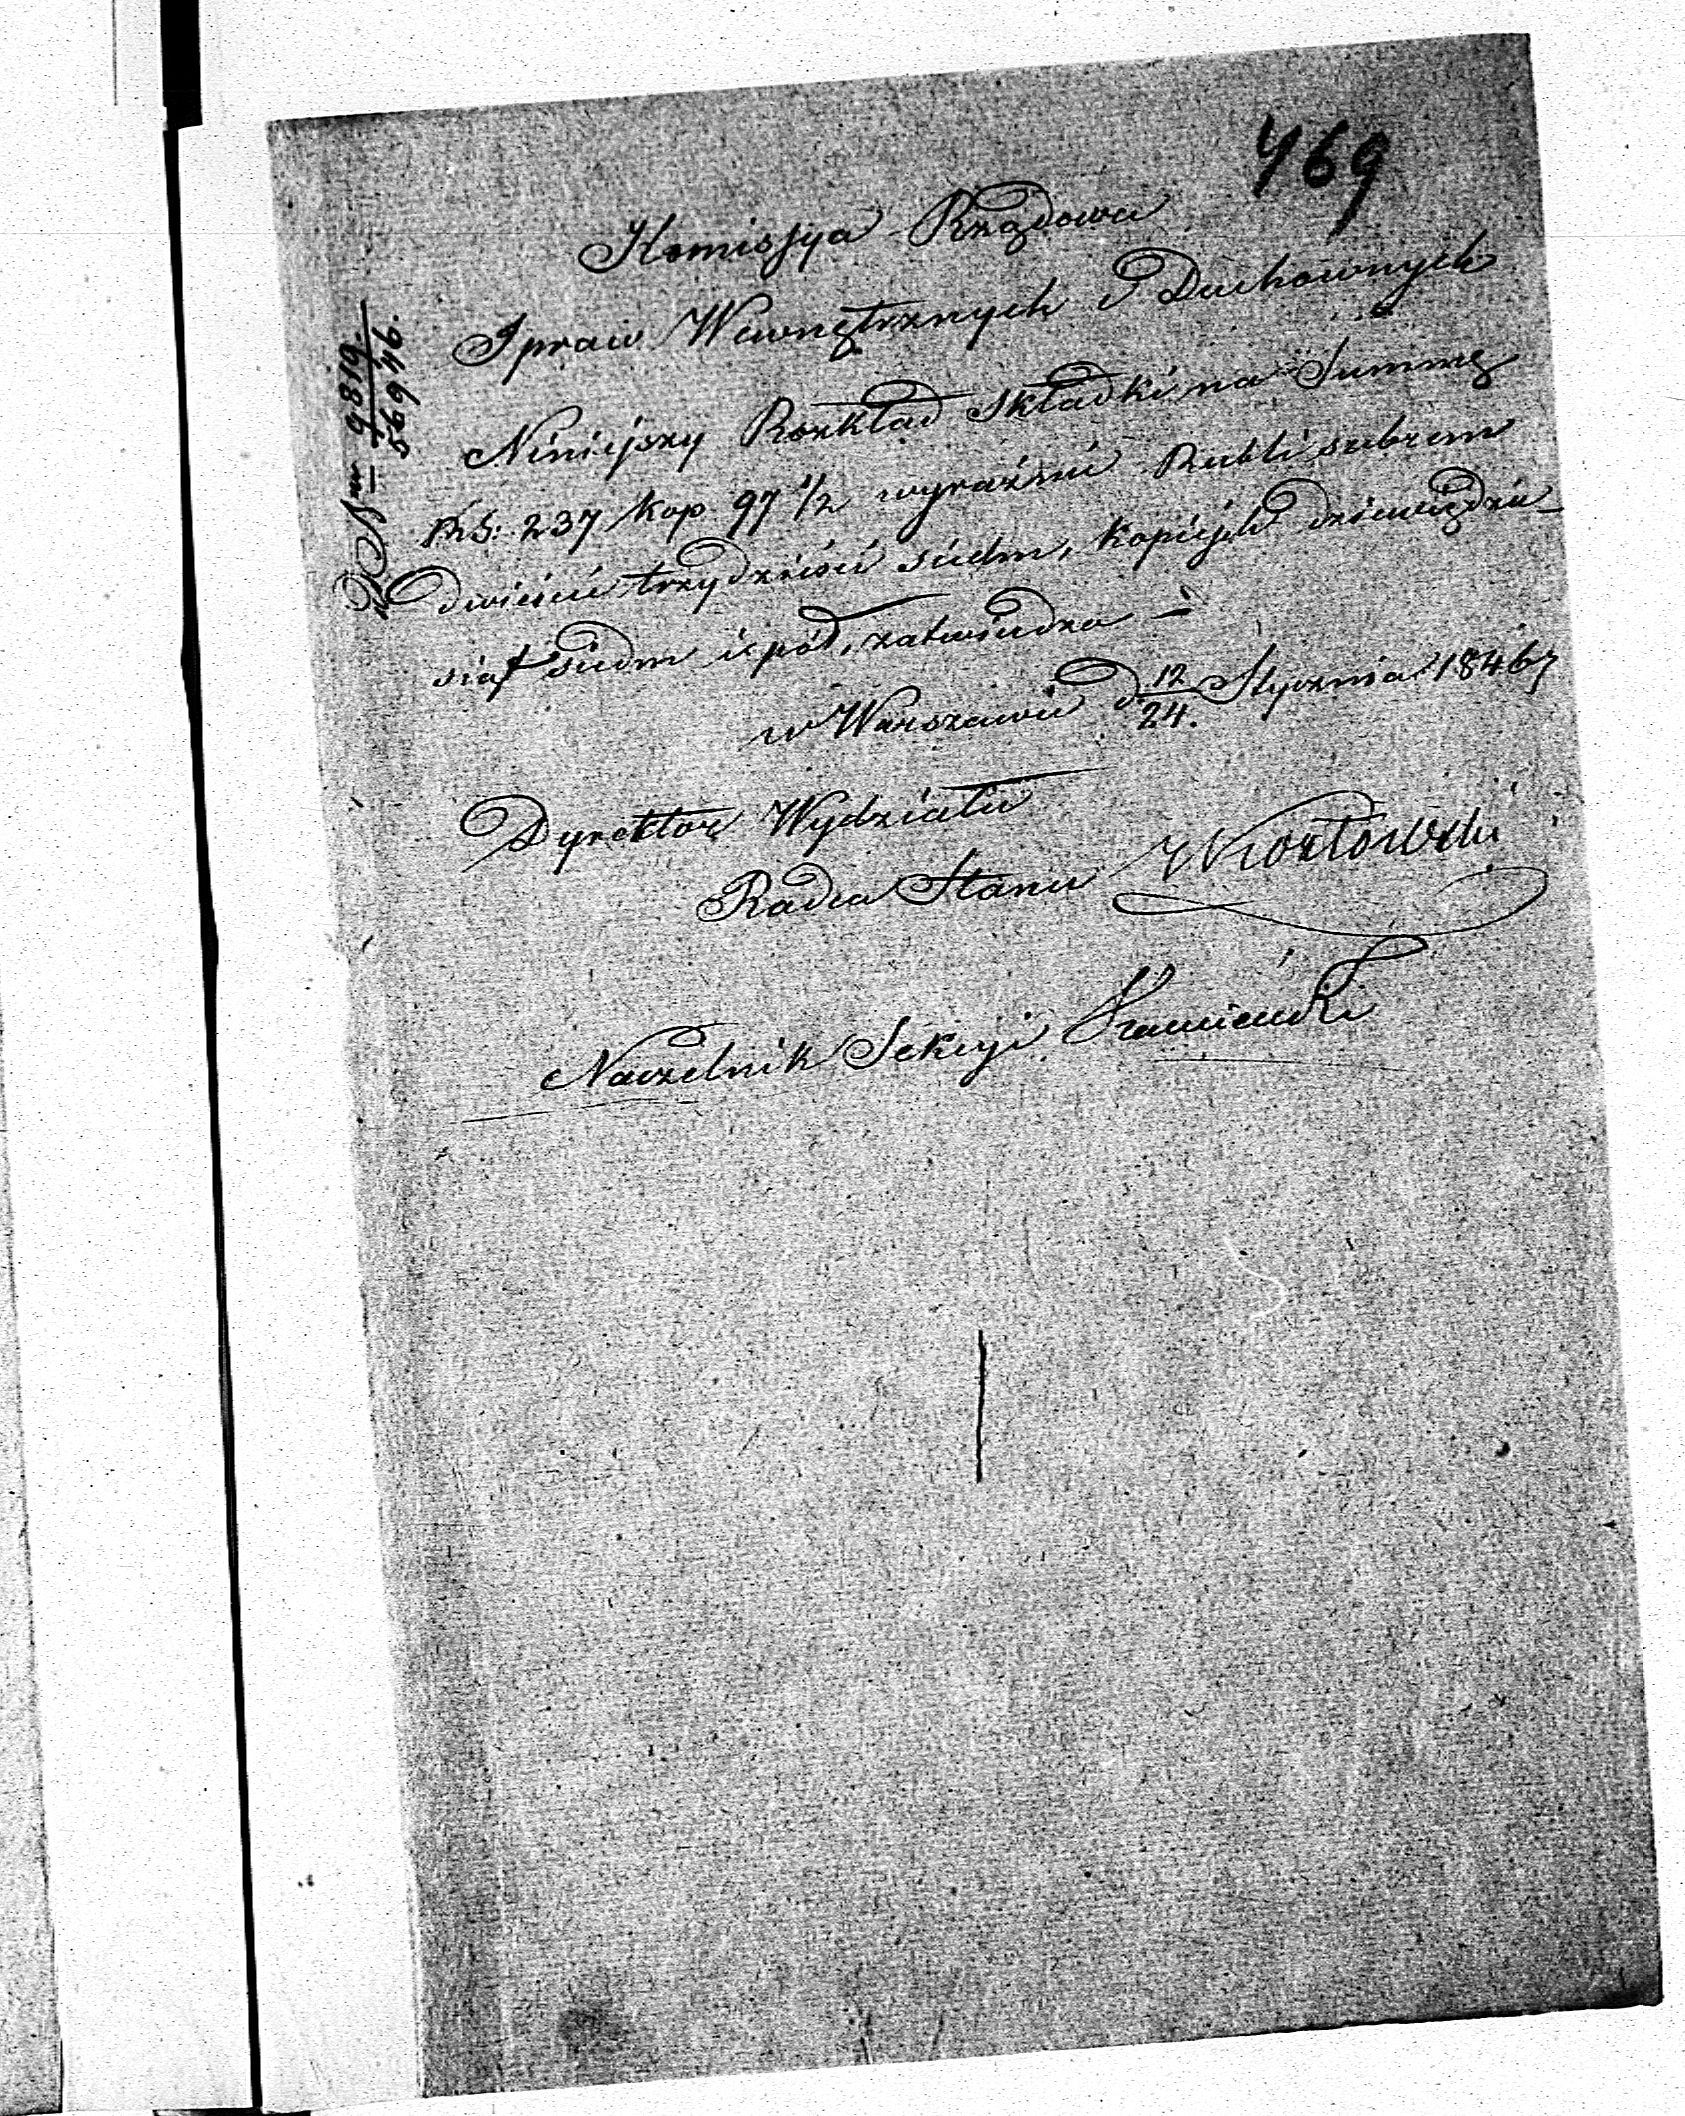 469
Komissya Rządowa
Spraw Wewnętrznych i Duchownych
Niniejszy Rozkład składki na Summę
Rs: 237 kop. 97 1/2 wyraźnie Rubli srebrem
dwieście trzydzieści siedm, kopiejek dziewięćdzie-
siąt siedm i pół, zatwierdza –
w Warszawie d 12/24. Stycznia 1846 r
Dyrektor Wydziału
Radca Stanu Kozłowski
Naczelnik Sekcyi
9819.
56946.